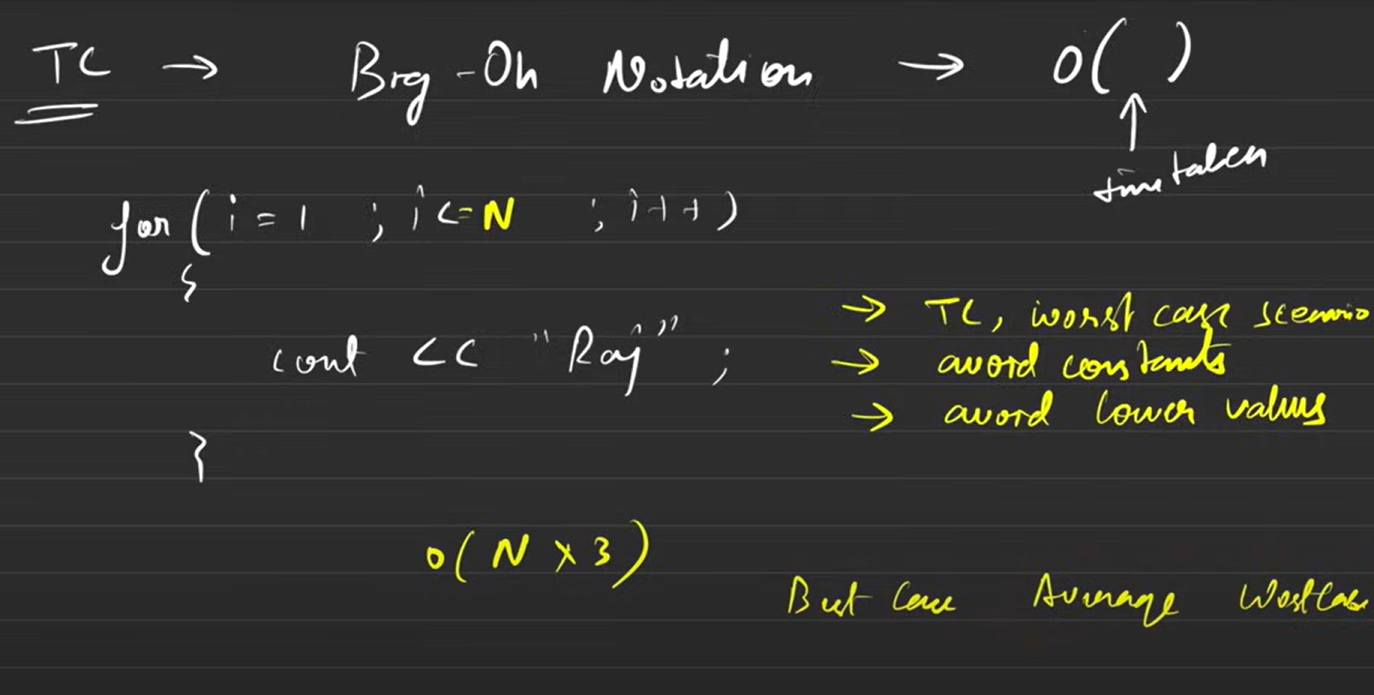 TC → Big-Oh Notation → O( )
↑
time taken
for(i = 1 ; i <= N ; i++)
{
cout << "Raj" ;
}
→ TC, worst case scenario
→ avoid constants
→ avoid lower values
O(N x 3)
Best Case Average Worst Case